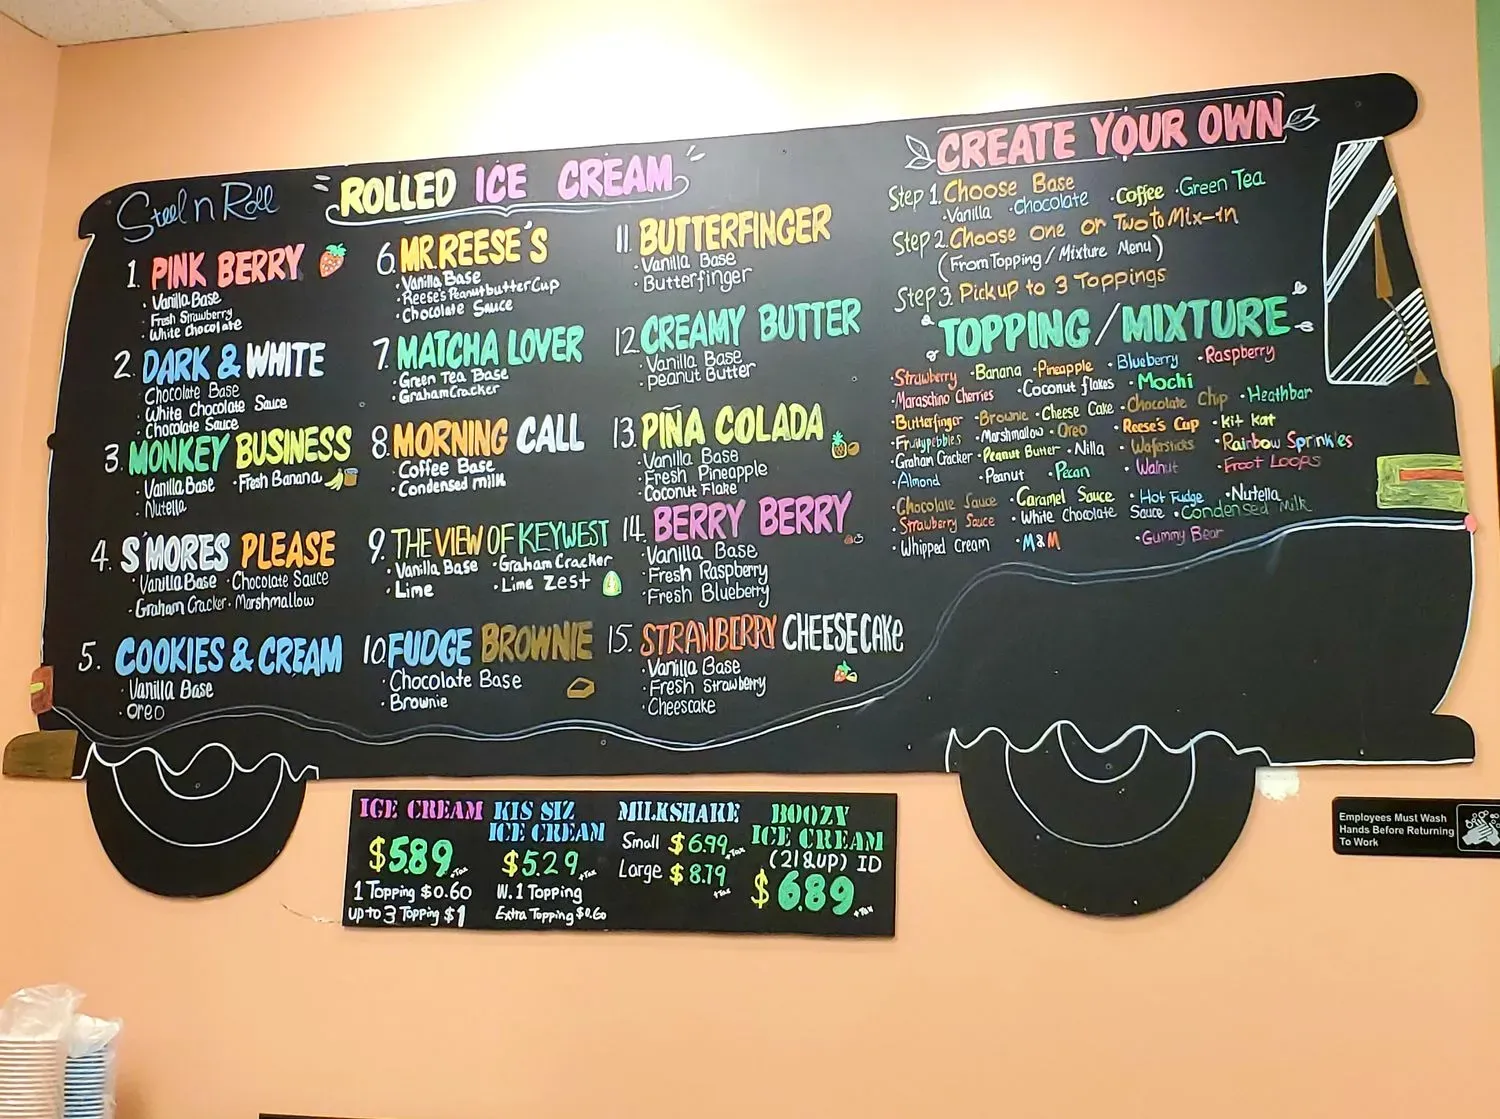 Steel n Roll
ROLLED ICE CREAM
1. PINK BERRY
· Vanilla Base
· Fresh Strawberry
· White Chocolate
2. DARK & WHITE
· Chocolate Base
· White Chocolate Sauce
· Chocolate Sauce
3. MONKEY BUSINESS
· Vanilla Base · Fresh Banana
· Nutella
4. S'MORES PLEASE
· Vanilla Base · Chocolate Sauce
· Graham Cracker · Marshmallow
5. COOKIES & CREAM
· Vanilla Base
· Oreo
6. MR.REESE'S
· Vanilla Base
· Reese's Peanutbutter Cup
· Chocolate Sauce
7. MATCHA LOVER
· Green Tea Base
· Graham Cracker
8. MORNING CALL
· Coffee Base
· Condensed milk
9. THE VIEW OF KEYWEST
· Vanilla Base · Graham Cracker
· Lime · Lime Zest
10. FUDGE BROWNIE
· Chocolate Base
· Brownie
11. BUTTERFINGER
· Vanilla Base
· Butterfinger
12. CREAMY BUTTER
· Vanilla Base
· peanut Butter
13. PIÑA COLADA
· Vanilla Base
· Fresh Pineapple
· Coconut Flake
14. BERRY BERRY
· Vanilla Base
· Fresh Raspberry
· Fresh Blueberry
15. STRAWBERRY CHEESECAKE
· Vanilla Base
· Fresh Strawberry
· Cheescake
CREATE YOUR OWN
Step 1. Choose Base
· Vanilla · Chocolate · Coffee · Green Tea
Step 2. Choose one or Two to Mix-in
(From Topping / Mixture Menu)
Step 3. Pick up to 3 Toppings
TOPPING / MIXTURE
· Strawberry · Banana · Pineapple · Blueberry · Raspberry
· Maraschino Cherries · Coconut flakes · Mochi
· Butterfinger · Brownie · Cheese Cake · Chocolate Chip · Heathbar
· Fruitypebbles · Marshmallow · Oreo · Reese's Cup · kit kat
· Graham Cracker · Peanut Butter · Nilla · Wafersticks · Rainbow Sprinkles
· Almond · Peanut · Pecan · Walnut · Froot Loops
· Chocolate Sauce · Caramel Sauce · Hot Fudge · Nutella
· Strawberry Sauce · White Chocolate Sauce · Condensed Milk
· Whipped Cream · M&M · Gummy Bear
ICE CREAM
$5.89 +Tax
1 Topping $0.60
up to 3 Topping $1
KIS SIZ
ICE CREAM
$5.29 +Tax
W. 1 Topping
Extra Topping $0.60
MILKSHAKE
Small $6.99 +Tax
Large $8.79 +Tax
BOOZY
ICE CREAM
(21&UP) ID
$6.89 +Tax
Employees Must Wash
Hands Before Returning
To Work